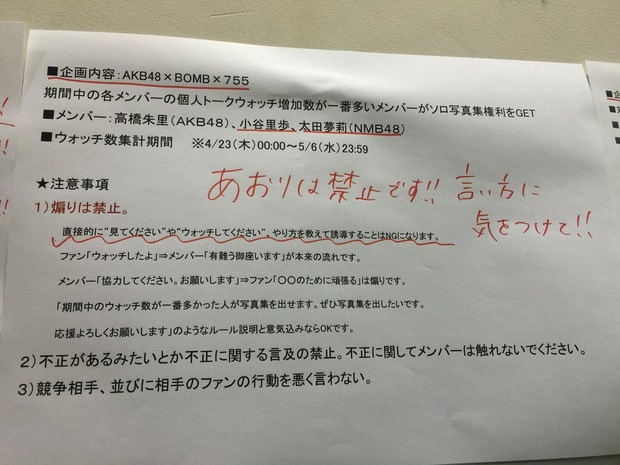 ■企画内容:AKB48×BOMB×755
期間中の各メンバーの個人トークウォッチ増加数が一番多いメンバーがソロ写真集権利をGET
■メンバー:高橋朱里(AKB48)、小谷里歩、太田夢莉(NMB48)
■ウォッチ数集計期間 ※4/23(木)00:00~5/6(水)23:59
★注意事項
あおりは禁止です!! 言い方に
気をつけて!!
1)煽りは禁止。
直接的に"見てください"や"ウォッチしてください"、やり方を教えて誘導することはNGになります。
ファン「ウォッチしたよ」⇒メンバー「有難う御座います」が本来の流れです。
メンバー「協力してください。お願いします」⇒ファン「〇〇のために頑張る」は煽りです。
「期間中のウォッチ数が一番多かった人が写真集を出せます。ぜひ写真集を出したいです。
応援よろしくお願いします」のようなルール説明と意気込みならOKです。
2)不正があるみたいとか不正に関する言及の禁止。不正に関してメンバーは触れないでください。
3)競争相手、並びに相手のファンの行動を悪く言わない。